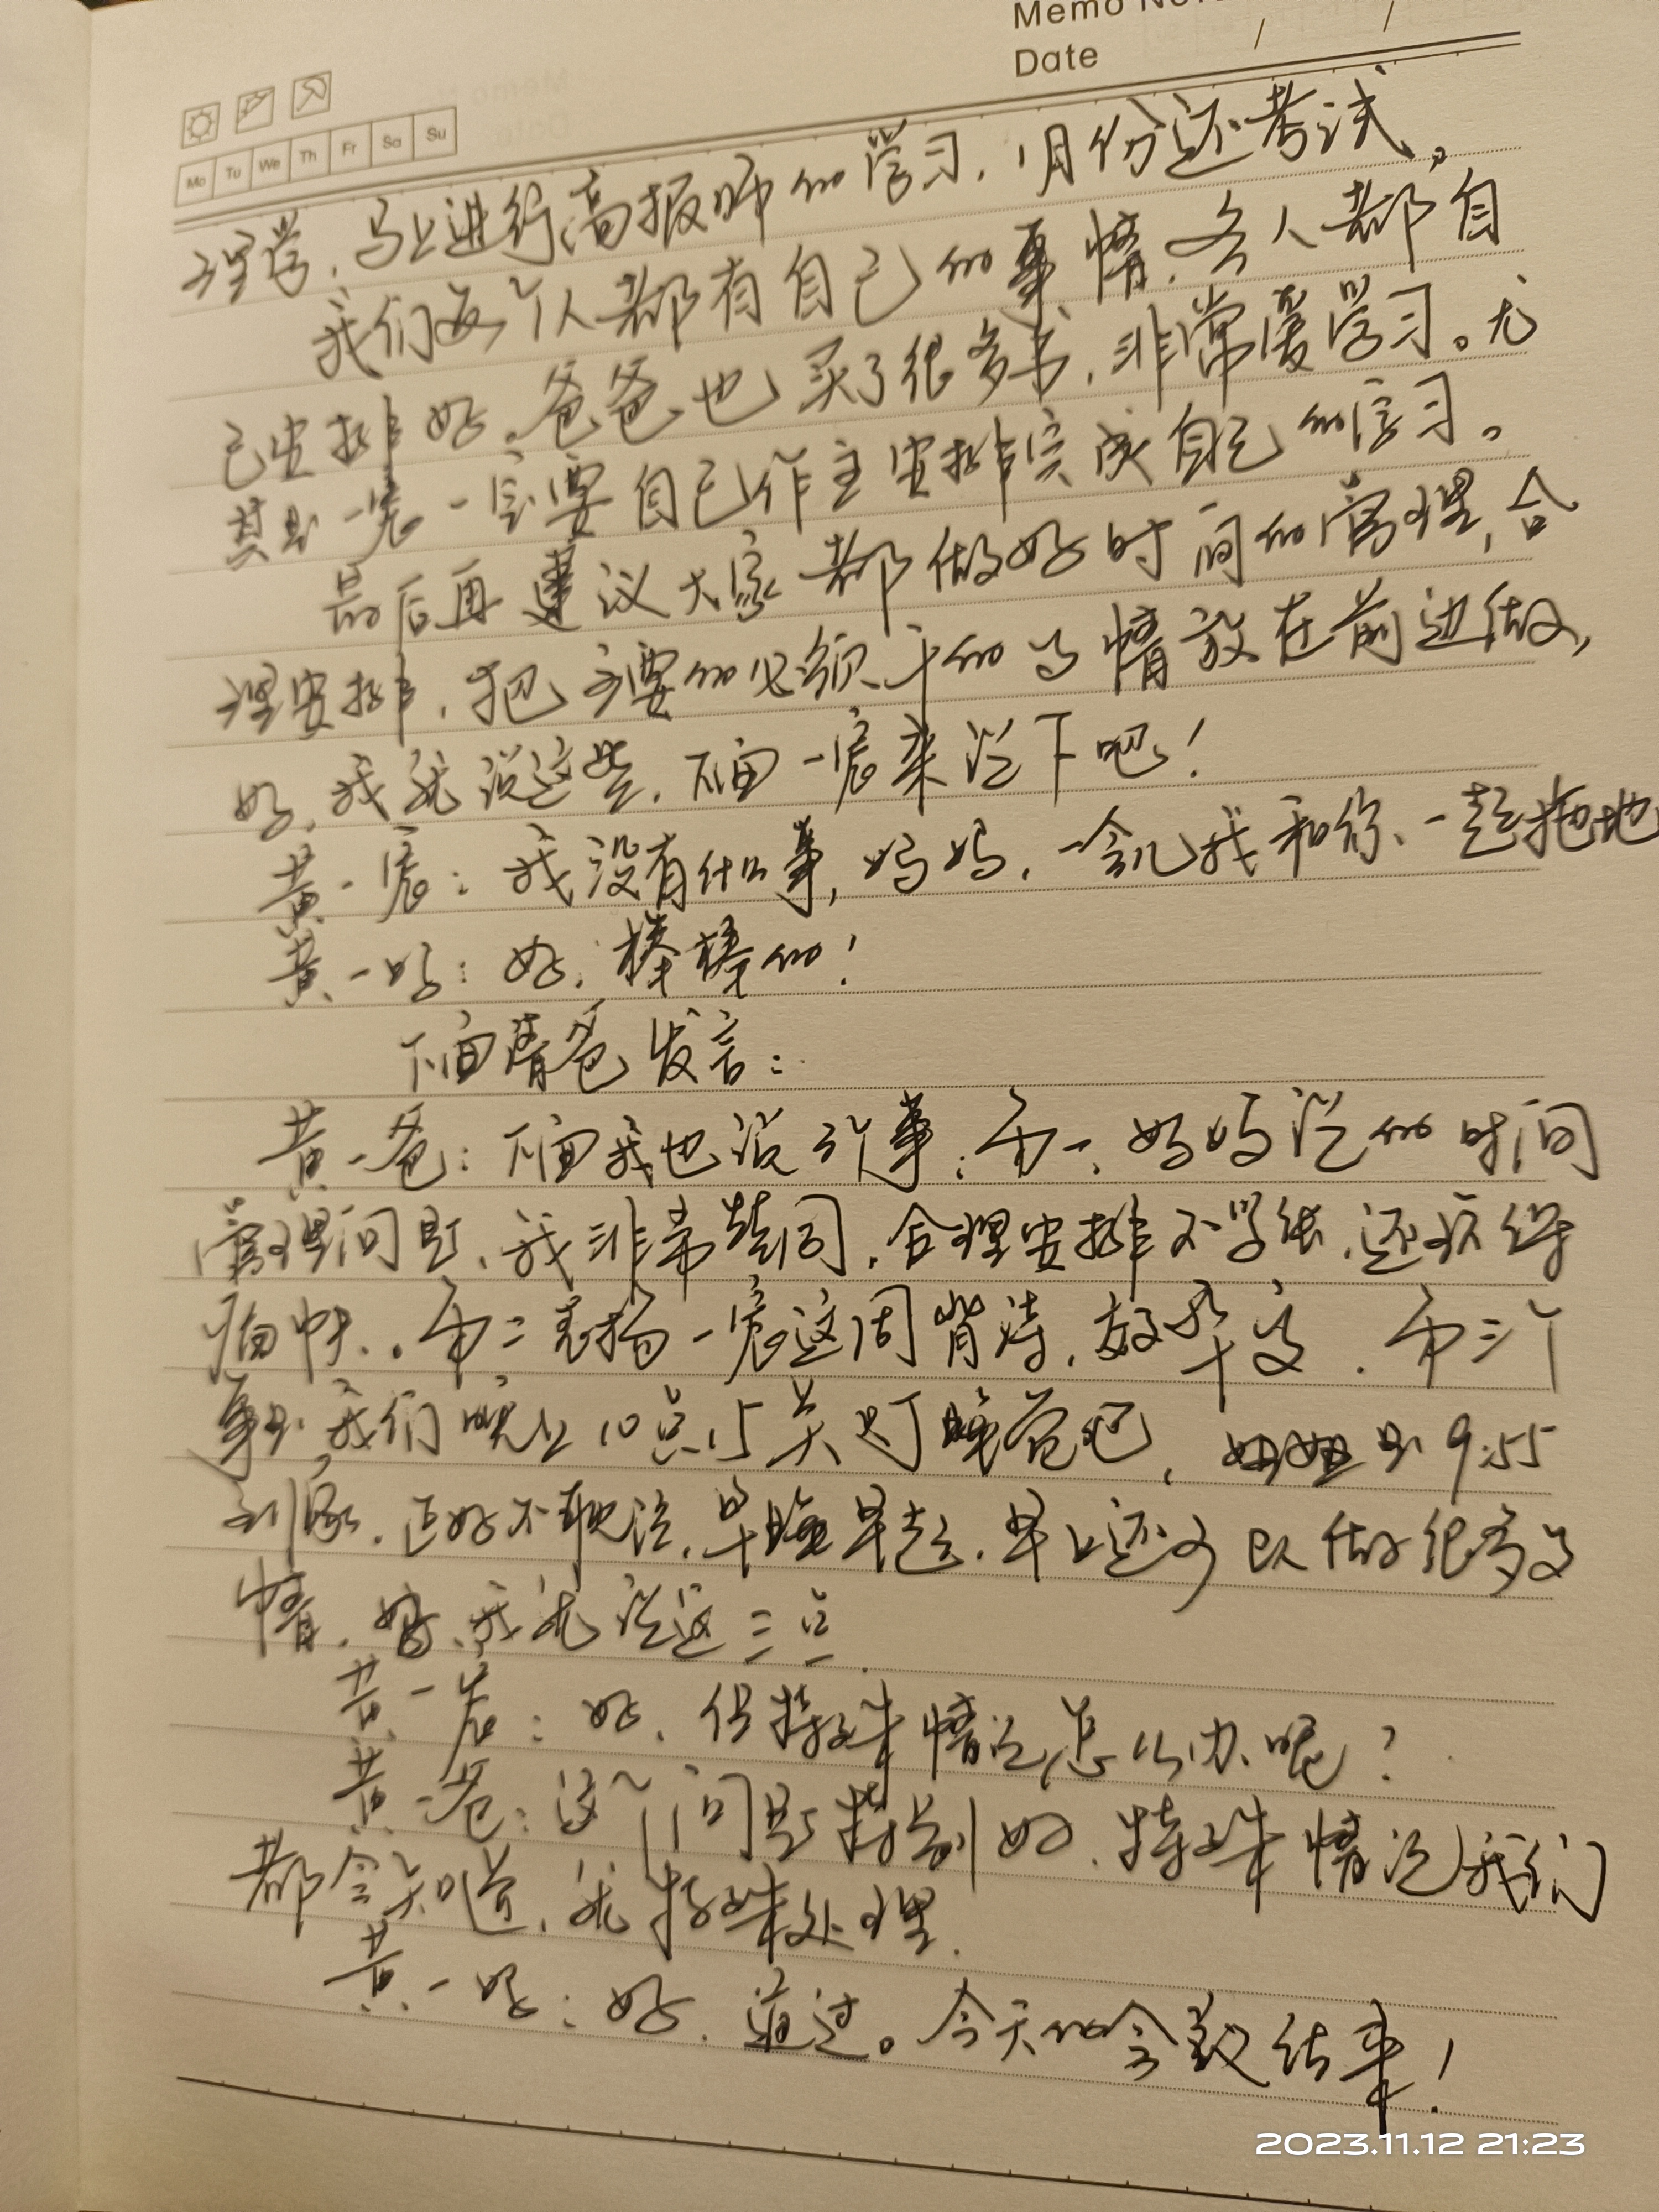 Memo No.
Date / /
Mo Tu We Th Fr Sa Su
理学，马上进行高报师的学习，1月份还考试。
我们每个人都有自己的事情，各人都自
己安排好。爸爸也买了很多书，非常爱学习。尤
其是一宸一定要自己作主安排完成自己的学习。
最后再建议大家都做好时间的管理，合
理安排，把主要的必须干的事情放在前边做，
好，我就说这些，下面一宸来说下吧！
黄一宸：我没有什么事，妈妈，一会儿我和你一起拖地
黄一妈：好，棒棒的！
下面请爸发言：
黄一爸：下面我也说三个事：第一，妈妈说的时间
管理问题，我非常赞同，合理安排不紧张，还
第二表扬一宸这周背诗，效率高，第三个
事是我们晚上10点15关灯睡觉吧，妞妞是9:55
到家，正好不耽误，早睡早起，早上还可以做很多事
情，好，我就说这三点
黄一宸：好，但特殊情况怎么办呢？
黄一爸：这个问题特别好，特殊情况我们
都会知道，就特殊处理
黄一妈：好，通过。今天的会议结束！
2023.11.12 21:23